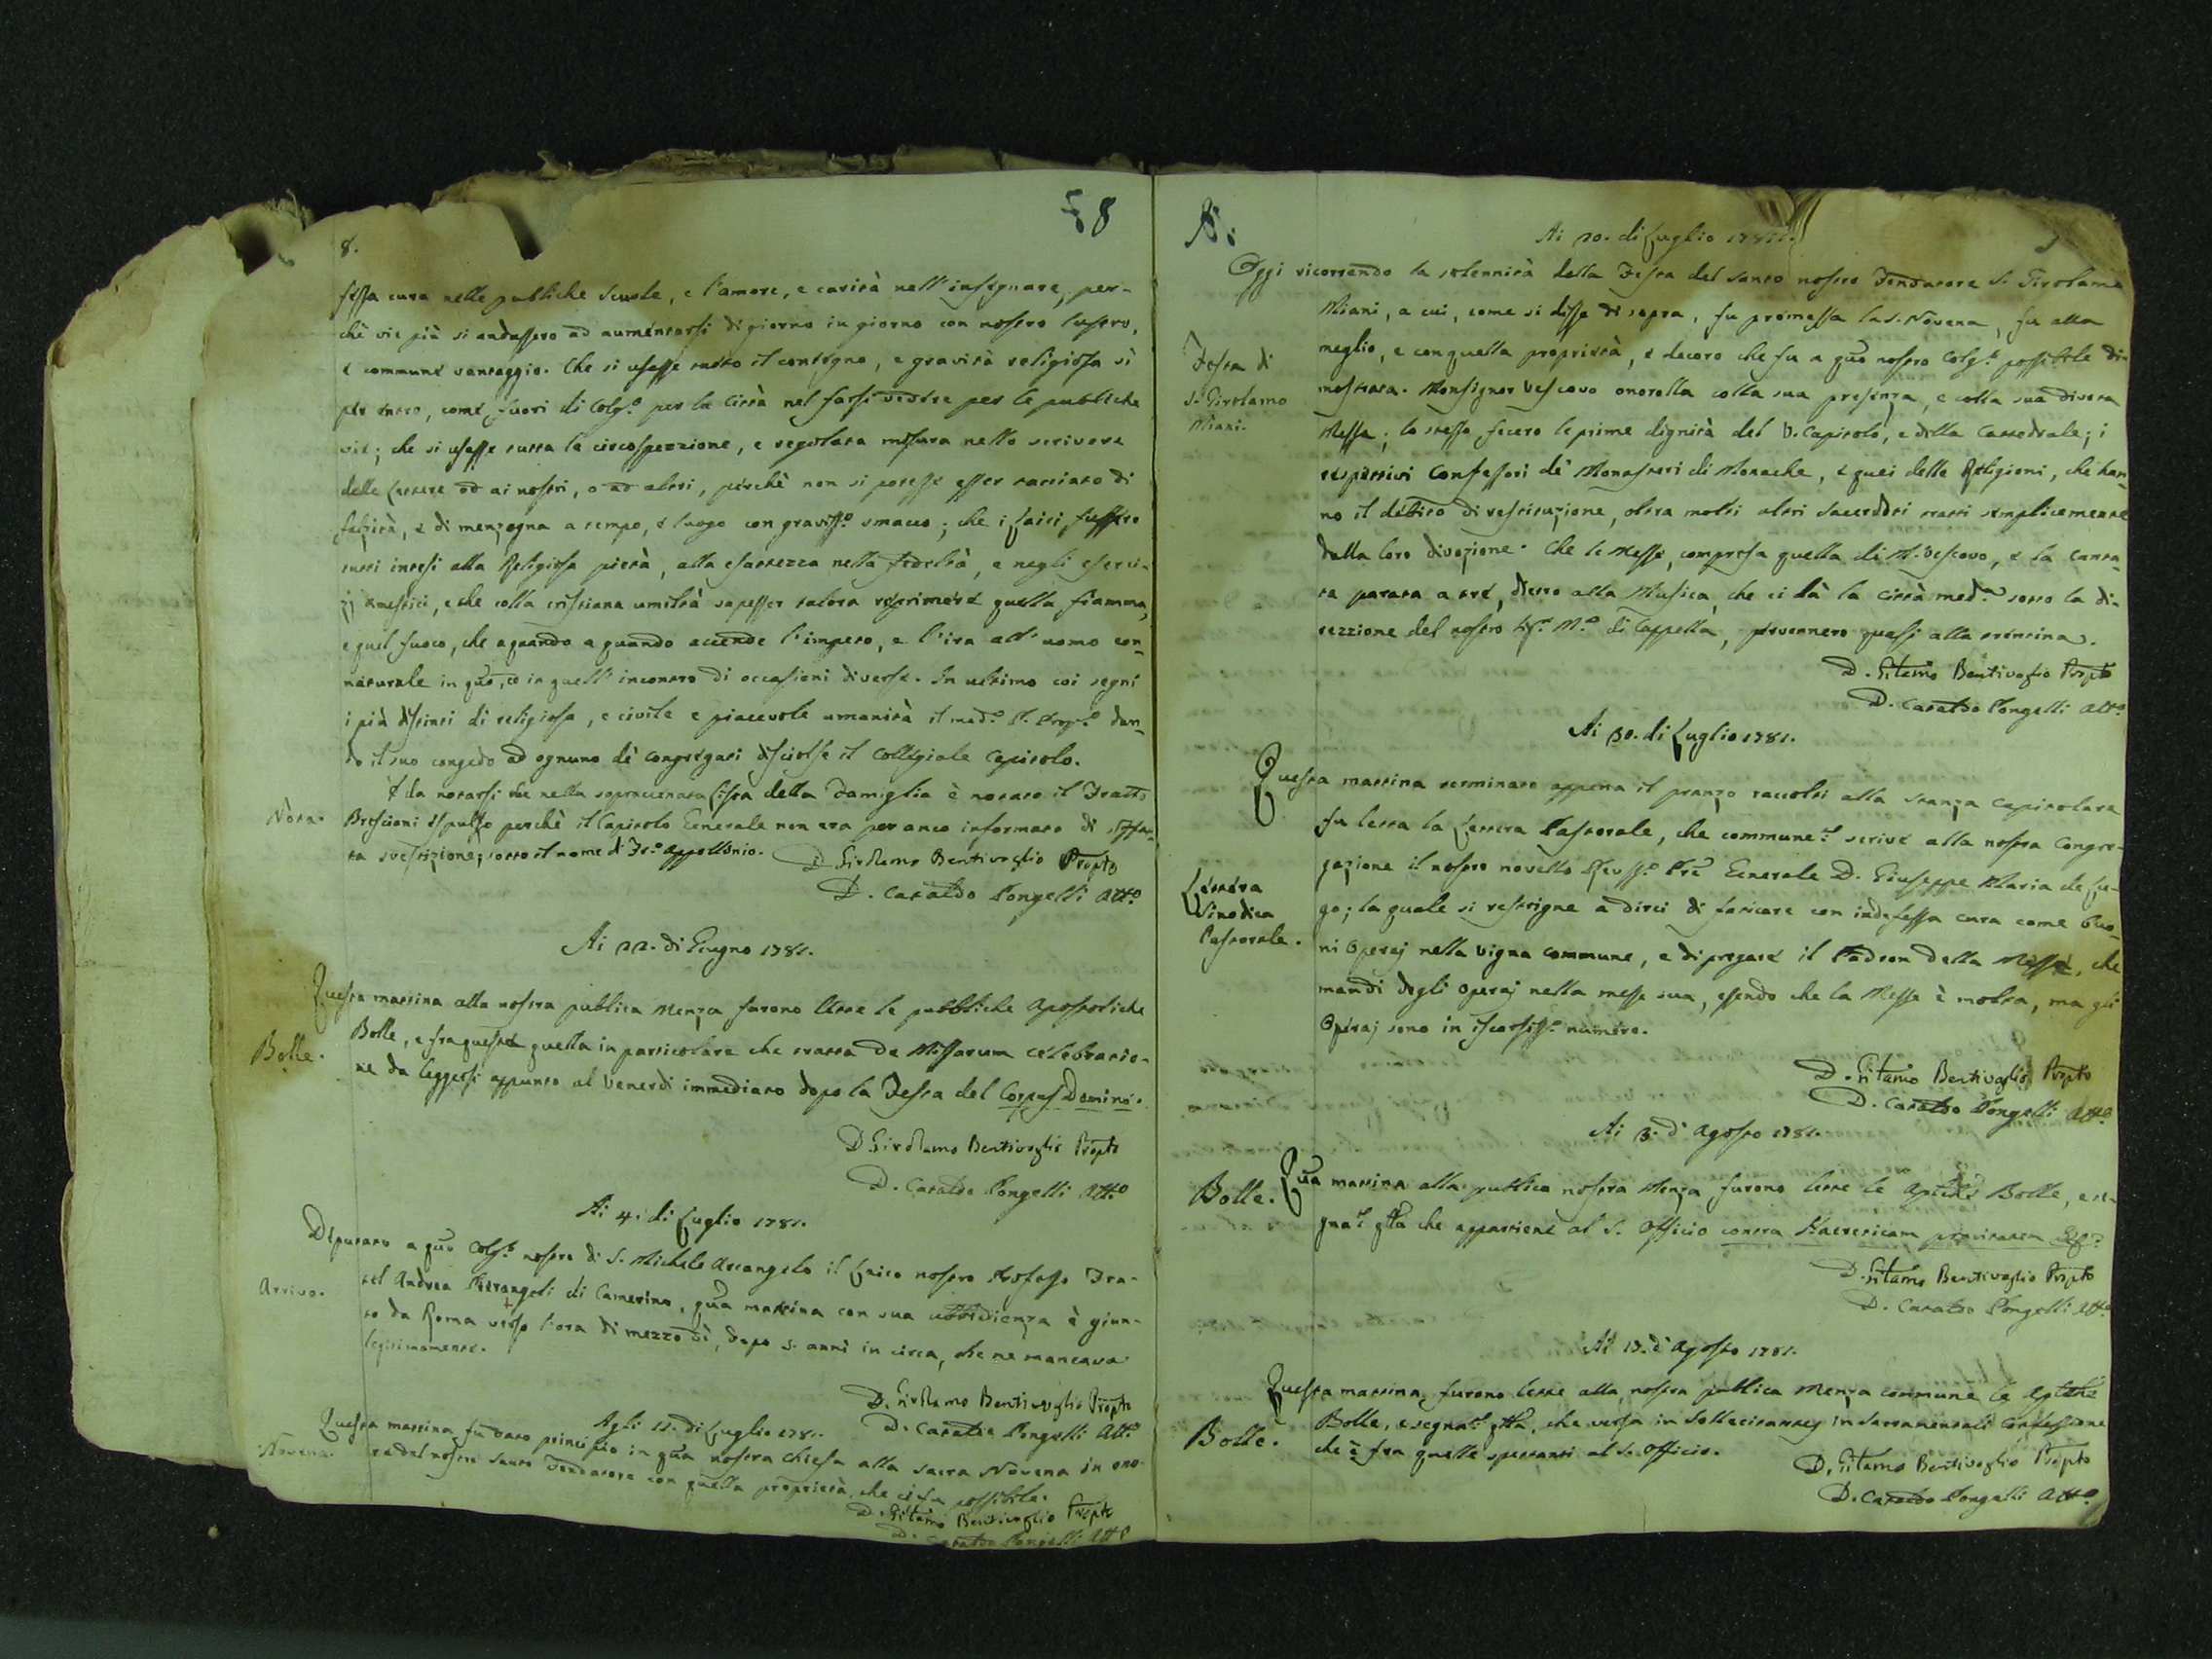 8.
58
stessa cura nelle publiche Scuole, e l'amore, e carità nell'insegnare, per-
chè vie più si andassero ad aumentarsi di giorno in giorno con nostro lustro,
e commune vantaggio. Che si usasse tutto il contegno, e gravità religiosa sì
per entro, come fuori di Colg.º per la Città nel farsi vedere per le publiche
vie; che si usasse tutta la circospezzione, e regolata misura nello scrivere
delle Lettere od ai nostri, o ad altri, perchè non si potesse esser tacciato di
falsità, e di menzogna a tempo, e luogo con graviss.º smacco; che i Laici fussero
tutti intesi alla Religiosa pietà, alla esattezza nella fedeltà, e negli eserci-
zj domestici, e che colla cristiana umiltà sapesser talora reprimere quella fiamma,
e quel fuoco, che a quando a quando accende l'impeto, e l'ira all'uomo con-
naturale in quo, ed in quell'incontro di occasioni diverse. In ultimo coi segni
i più distinti di religiosa, e civile e piacevole umanità il med.º P. Prop.º dan-
do il suo congedo ad ognuno de' congregati disciolse il Collegiale Capitolo.
Nota.
È da notarsi che nella sopracitata Lista della Famiglia è notato il Fratto
Brescioni espulso perchè il Capitolo Generale non era per anco informato di siffat-
ta svestizione; sotto il nome di Fr.º Appollonio.
D. Girolamo Bentivoglio Propto
D. Cataldo Pongelli Att.º
Ai 22. di Giugno 1781.
Bolle.
Questa mattina alla nostra publica Menza furono lette le pubbliche Apostoliche
Bolle, e fra queste quella in particolare che tratta de Missarum celebratio-
ne da leggersi appunto al Venerdì immediato dopo la Festa del Corpus Domini.
D. Girolamo Bentivoglio Propto
D. Cataldo Pongelli Att.º
Ai 4. di Luglio 1781.
Arrivo.
Deputato a quo Colg.º nostro di S. Michele Arcangelo il Laico nostro Professo Fra-
tel Andrea Pierangeli di Camerino, qua mattina con sua ubbidienza è giun-
to da Roma verso l'ora di mezzo dì, dopo 5. anni in circa, che ne mancava
legitimamente.
D. Girolamo Bentivoglio Propto
D. Cataldo Pongelli Att.º
Agli 11. di Luglio 1781.
Novena.
Questa mattina fu dato principio in qua nostra Chiesa alla sacra Novena in ono-
re del nostro Santo Fondatore con quella proprietà, che ci fu possibile.
D. Gilamo Bentivoglio Propto
D. Cataldo Pongelli Att.º
Ai 20. di Luglio 1781.
Festa di
S. Girolamo
Miani.
Oggi ricorrendo la solennità della Festa del Santo nostro Fondatore S. Girolamo
Miani, a cui, come si disse di sopra, fu promessa la S. Novena, fu alla
meglio, e con quella proprietà, e decoro che fu a quo nostro Colg.º possibile di-
mostrata. Monsignor Vescovo onorolla colla sua presenza, e colla sua divota
Messa; lo stesso fecero le prime dignità del V. Capitolo, e della Cattedrale; i
respettivi Confessori de' Monasteri di Monache, e quei delle Religioni, che han-
no il debito di restituzione, oltra molti altri Sacerdoti tratti semplicemente
dalla loro divozione. Che le Messe, compresa quella di M. Vescovo, e la canta-
ta parata a tre, dietro alla Musica, che ci dà la Città med.ª sotto la di-
rezzione del nostro Sig.r M.º di Cappella, pervennero quasi alla trentina.
D. Gilamo Bentivoglio Propto
D. Cataldo Pongelli Att.º
Ai 30. di Luglio 1781.
Lettera
Sinodica
Pastorale.
Questa mattina terminato appena il pranzo raccolti alla stanza Capitolare
fu letta la Lettera Pastorale, che commune.te scrive alla nostra Congre-
gazione il nostro novello Rev.ss.º Prē Generale D. Giuseppe Maria de Lu-
go; la quale si restrigne a dirci di faticare con indefessa cura come buo-
ni Operaj nella vigna commune, e di pregare il Padron della Messe, che
mandi degli Operaj nella messe sua, essendo che la Messe è molta, ma gli
Operaj sono in iscarsiss.º numero.
D. Gilamo Bentivoglio Propto
D. Cataldo Pongelli Att.º
Ai 3. d'Agosto 1781.
Bolle.
Qua mattina alla publica nostra Menza furono lette le Aptche Bolle, e se-
gnat.e qtta che appartiene al S. Officio contra Haereticam pravitatem
D. Gilamo Bentivoglio Propto
D. Cataldo Pongelli Att.º
Ai 17. d'Agosto 1781.
Bolle.
Questa mattina furono lette alla nostra publica Menza commune le Aptche
Bolle, e segnat.e qtta, che versa in Sollecitantes in Sacramentali Confessione
che è fra quelle spettanti al S. Officio.
D. Gilamo Bentivoglio Propto
D. Cataldo Pongelli Att.º